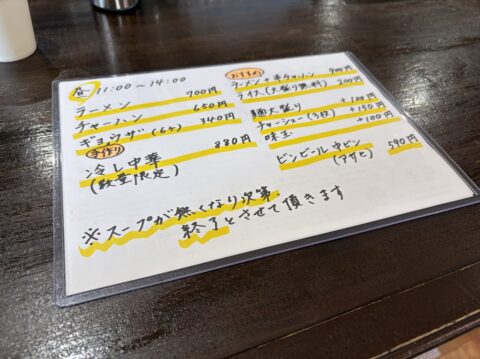 昼 11:00～14:00
ラーメン 700円
チャーハン 650円
ギョウザ(6ケ) 340円
手作り
冷し中華 880円
(数量限定)
おすすめ
ラーメン+半チャーハン 900円
ライス(大盛り無料) 200円
麺大盛り +100円
チャーシュー(3枚) +150円
味玉 +100円
ビンビール中ビン 590円
(アサヒ)
※スープが無くなり次第、
終了とさせて頂きます